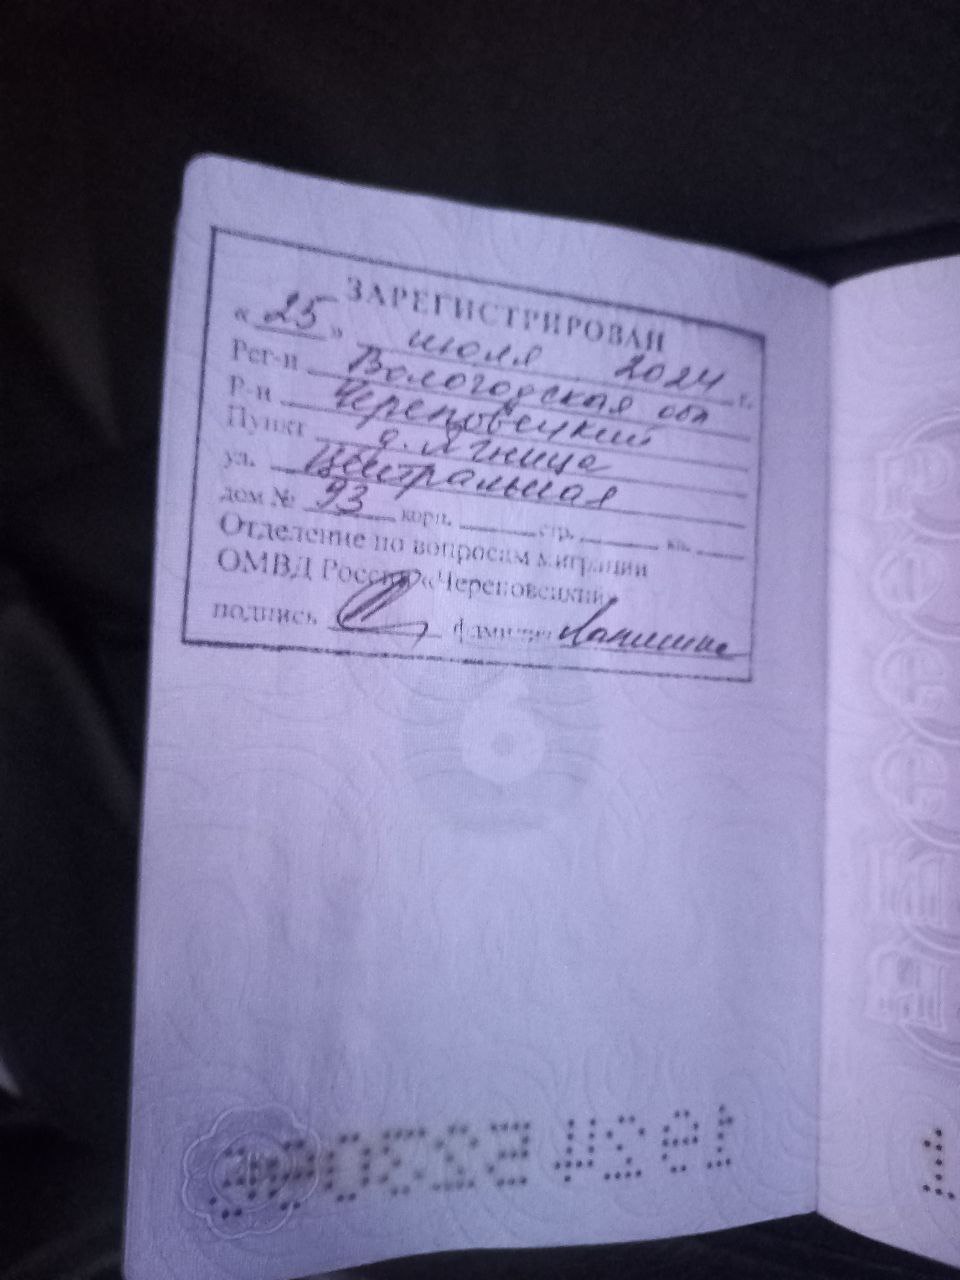 ЗАРЕГИСТРИРОВАН
« 25 » июля 2024 г.
Рег-н Вологодская обл
Р-н Череповецкий
Пункт д. Ягница
ул. Центральная
дом № 93 корп. стр. кв.
Отделение по вопросам миграции
ОМВД России «Череповецкий»
подпись фамилия